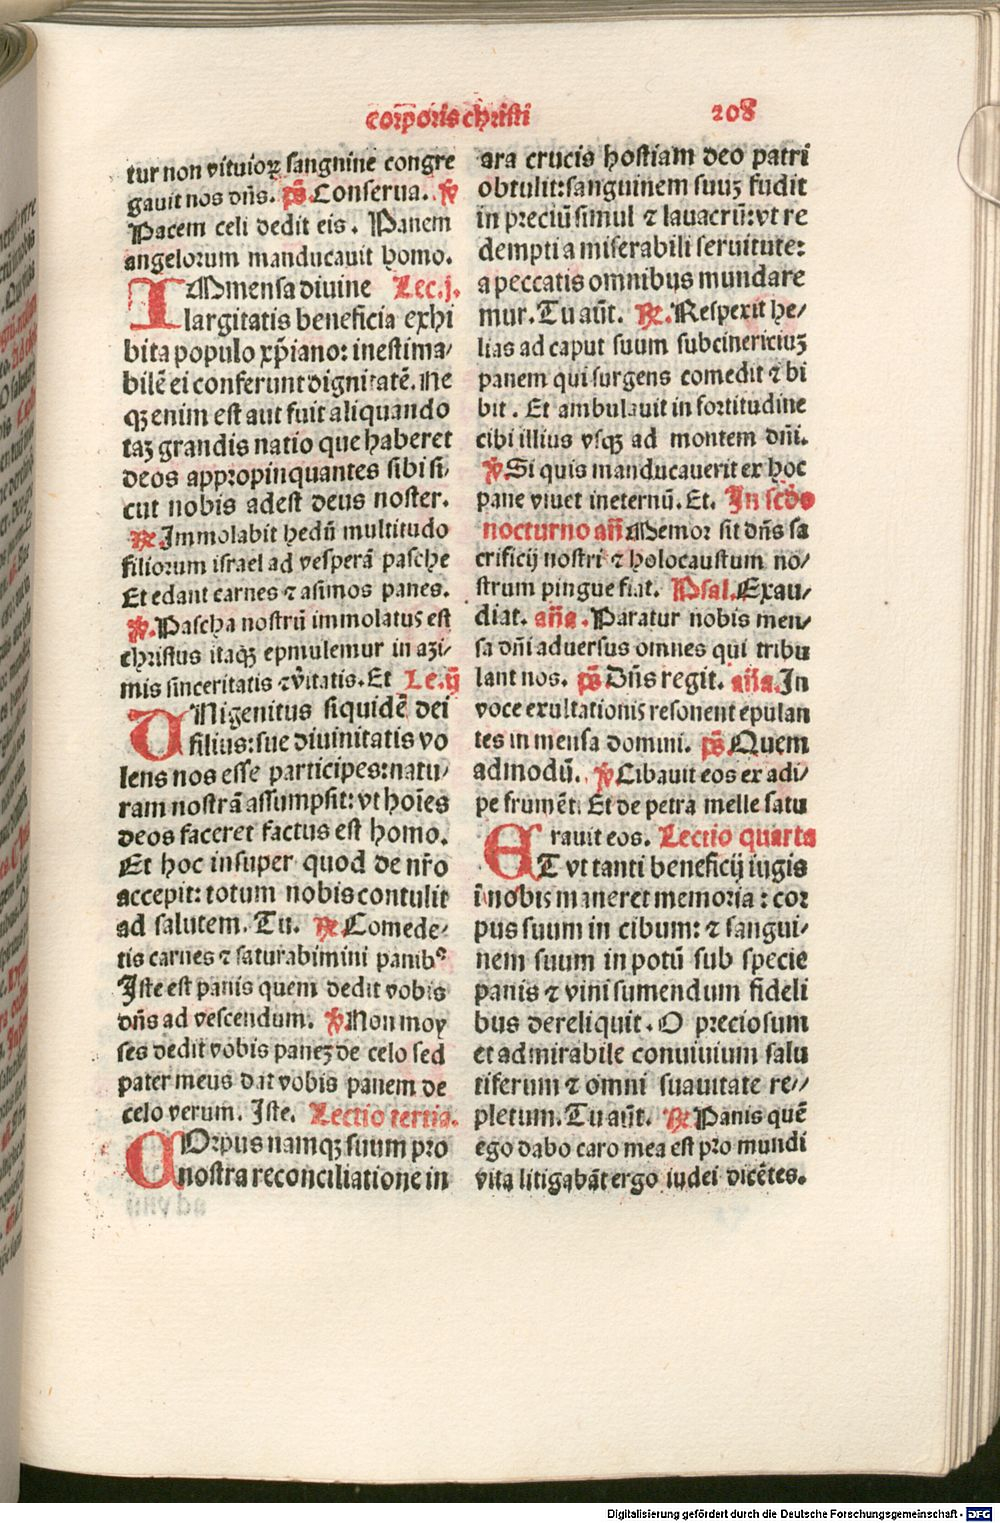 corꝑoris christi 208
tur non vituioꝝ sangnine congre
gauit nos dn̄s. ps̄. Conserua. ℣
Pacem celi dedit eis. Panem
angelorum manducauit homo.
IMmensa diuine Lec. j.
largitatis beneficia exhi
bita populo xp̄iano: inestima⸗
bilē ei conferunt dignitatē. Ne
qꝫ enim est aut fuit aliquando
taꝫ grandis natio que haberet
deos appropinquantes sibi si⸗
cut nobis adest deus noster.
℟. Immolabit hedū multitudo
filiorum israel ad vesperā pasche
Et edant carnes ⁊ asimos panes.
℣. Pascha nostrū immolatus est
christus itaqꝫ epmulemur in azi⸗
mis sinceritatis ⁊ v̄itatis. Et Le. ij
UNigenitus siquidē dei
filius: sue diuinitatis vo
lens nos esse participes: natu⸗
ram nostrā assumpsit: vt hoīes
deos faceret factus est homo.
Et hoc insuper quod de nr̄o
accepit: totum nobis contulit
ad salutem. Tu. ℟ Comede⸗
tis carnes ⁊ saturabimini panibꝰ
Iste est panis quem dedit vobis
dn̄s ad vescendum. ℣ Non moy
ses dedit vobis paneꝫ de celo sed
pater meus dat vobis panem de
celo verum. Iste. Lectio tertia.
COrpus namqꝫ suum pro
nostra reconciliatione in
ara crucis hostiam deo patri
obtulit: sanguinem suuꝫ fudit
in preciū simul ⁊ lauacrū: vt re
dempti a miserabili seruitute:
a peccatis omnibus mundare
mur. Tu aūt. ℟. Respexit he⸗
lias ad caput suum subcinericiuꝫ
panem qui surgens comedit ⁊ bi
bit. Et ambulauit in fortitudine
cibi illius vsqꝫ ad montem dn̄i.
℣ Si quis manducauerit ex hoc
pane viuet in eternū. Et. In scd̄o
nocturno an̄ Memor sit dn̄s sa
crificij nostri ⁊ holocaustum no⸗
strum pingue fiat. Psal. Exau⸗
diat. an̄a. Paratur nobis men⸗
sa dn̄i aduersus omnes qui tribu
lant nos. ps̄ Dn̄s regit. an̄a. In
voce exultationis resonent epulan
tes in mensa domini. ps̄ Quem
admodū. ℣ Cibauit eos ex adi⸗
pe frumēt. Et de petra melle satu
rauit eos. Lectio quarta
ET vt tanti beneficij iugis
ī nobis maneret memoria: cor
pus suum in cibum: ⁊ sangui⸗
nem suum in potū sub specie
panis ⁊ vini sumendum fideli
bus dereliquit. O preciosum
et admirabile conuiuium salu
tiferum ⁊ omni suauitate re⸗
pletum. Tu aūt. ℟ Panis quē
ego dabo caro mea est pro mundi
vita litigabāt ergo iudei dicētes.
Digitalisierung gefördert durch die Deutsche Forschungsgemeinschaft - DFG